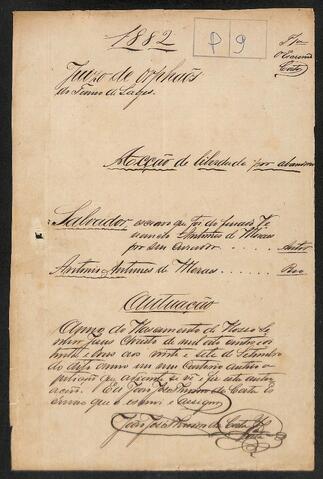 1882
P 9
Juizo de Orphãos
do Termo de Lages.
Acção de liberdade por abandono
Salvador, escravo que foi do finado
Antunes de Moraes
por seu Curador ..... Autor
Antonio Antunes de Moraes ..... Reo
Autuação
Anno do Nascimento de Nosso Se
nhor Jesus Christo de mil oito centos oi
tenta e dous aos vinte e sete de Setembro
do dito anno em meu Cartorio autuo a
petição que adiante se vê; e fiz esta autu
ação. Eu João José Theodoro da Costa Es
crivão que o escrevi e assigno
João José Theodoro da Costa